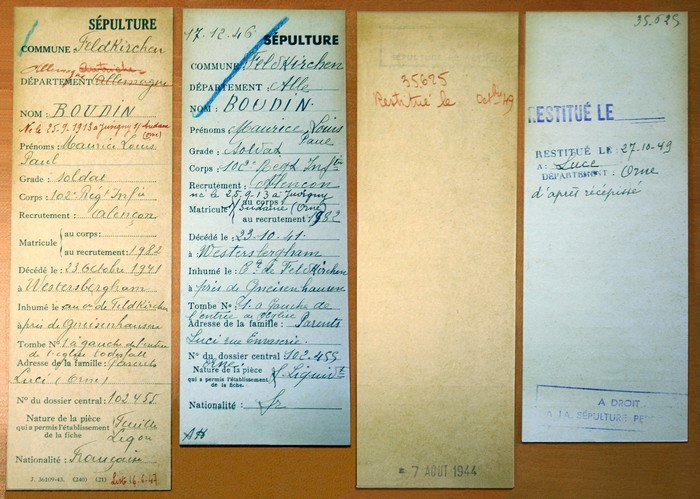 SÉPULTURE
COMMUNE : Feldkirchen
Autriche
DÉPARTEMENT : Allemagne
NOM : BOUDIN
Né le 25.9.1913 à Juvigny s/ Andaine
(Orne)
Prénoms : Maurice Louis
Paul
Grade : Soldat
Corps : 102e Régt Infie
Recrutement : Alençon
Matricule
au corps :
au recrutement : 1982
Décédé le : 23 Octobre 1941
à Westersbergham
Inhumé le : au de Feldkirchen
à près de Gneisenhausen
Tombe N° 1 à gauche de l'entrée
de l'église
Adresse de la famille : Parents
Lucé (Orne)
N° du dossier central : 102 455
Nature de la pièce
qui a permis l'établissement
de la fiche
Feuille
Nationalité : Française
J. 36109-43. (240) (21)
List 16.6.47
17-12-46
SÉPULTURE
COMMUNE : Feldkirchen
DÉPARTEMENT : Alle
NOM : BOUDIN.
Prénoms : Maurice Louis
Paul
Grade : Soldat
Corps : 102e Regt Infie
Recrutement : Alençon
né le 25.9.13 à Juvigny
Matricule
au corps :
Andaine (Orne)
au recrutement 1982
Décédé le : 23-10-41.
à Westersbergham
Inhumé le : Cre de Feldkirchen
à près de Gneisenhausen
Tombe N° : 1 à Gauche de
l'entrée de l'Eglise
Adresse de la famille : Parents
Lucé
Orne.
N° du dossier central 102.455
Nature de la pièce
qui a permis l'établissement
de la fiche
Nationalité : Fr
35625
Restitué le Octbre 49
= 7 AOUT 1944
35.625
RESTITUÉ LE
RESTITUÉ LE : 27-10-49
A : Lucé
DÉPARTEMENT : Orne
d'après récépissé
A DROIT
SÉPULTURE PE